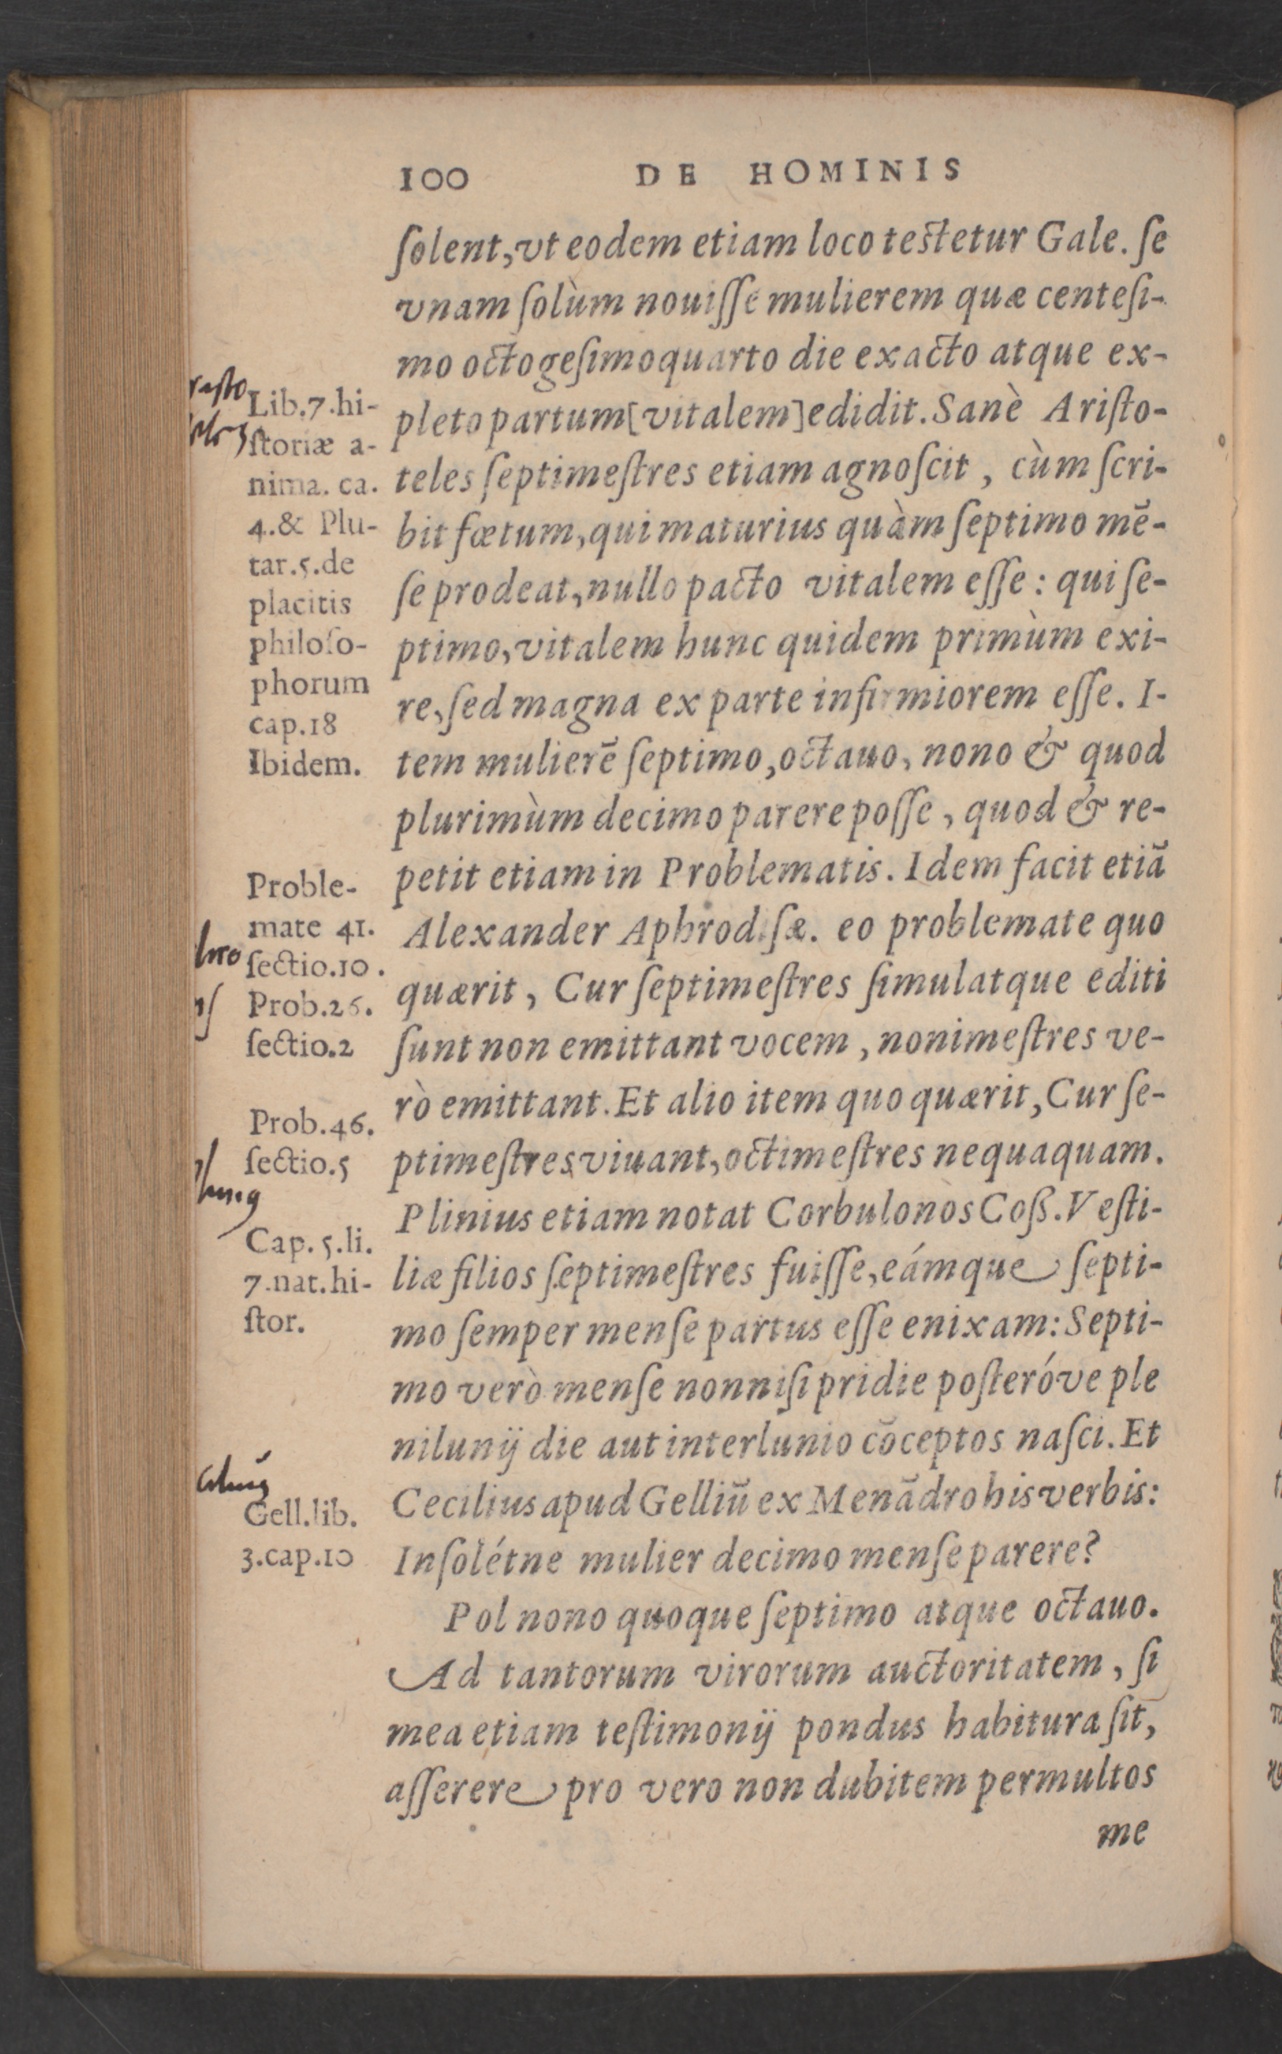 100 DE HOMINIS
ſolent, vt eodem etiam loco teſtetur Gale. ſe
vnam ſolùm nouiſſe mulierem quæ centeſi-
mo octogeſimoquarto die exacto atque ex-
pleto partum [vitalem] edidit. Sanè Ariſto-
teles ſeptimeſtres etiam agnoſcit, cùm ſcri-
bit fœtum, qui maturius quàm ſeptimo mē-
ſe prodeat, nullo pacto vitalem eſſe: qui ſe-
ptimo, vitalem hunc quidem primùm exi-
re, ſed magna ex parte infirmiorem eſſe. I-
tem mulierē ſeptimo, octauo, nono & quod
plurimùm decimo parere poſſe, quod & re-
petit etiam in Problematis. Idem facit etiā
Alexander Aphrodiſæ. eo problemate quo
quærit, Cur ſeptimeſtres ſimulatque editi
ſunt non emittant vocem, nonimeſtres ve-
rò emittant. Et alio item quo quærit, Cur ſe-
ptimeſtres viuant, octimeſtres nequaquam.
Plinius etiam notat Corbulonòs Coß. Veſti-
liæ filios ſeptimeſtres fuiſſe, eámque ſepti-
mo ſemper menſe partus eſſe enixam: Septi-
mo verò menſe nonniſi pridie poſteróve ple
nilunij die aut interlunio cōceptos naſci. Et
Cecilius apud Gelliū ex Menādro his verbis:
Inſolétne mulier decimo menſe parere?
Pol nono quoque ſeptimo atque octauo.
Ad tantorum virorum auctoritatem, ſi
mea etiam teſtimonij pondus habitura ſit,
aſſerere pro vero non dubitem permultos
me
Lib.7.hi-
ſtoriæ a-
nima. ca.
4.& Plu-
tar.5.de
placitis
philoſo-
phorum
cap.18
Ibidem.
Proble-
mate 41.
ſectio.10.
Prob.26.
ſectio.2
Prob.46.
ſectio.5
Cap.5.li.
7.nat.hi-
ſtor.
Gell.lib.
3.cap.10